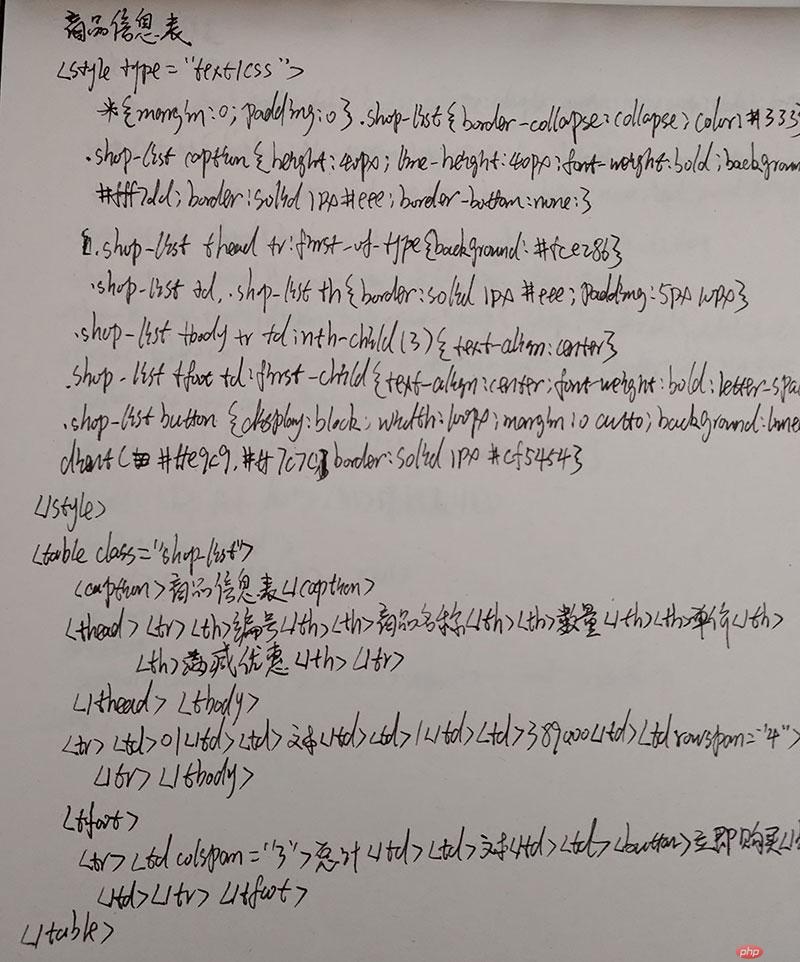 商品信息表
<style type="text/css">
*{margin:0; padding:0}.shop-list{border-collapse:collapse; color:#333}
.shop-list caption{height:40px; line-height:40px; font-weight:bold; backgroun
#fff7dd; border:solid 1px #eee; border-bottom:none;}
.shop-list thead tr:first-of-type{background:#fce286}
.shop-list td,.shop-list th{border:solid 1px #eee; padding:5px 10px}
.shop-list tbody tr td:nth-child(3){text-align:center}
.shop-list tfoot td:first-child{text-align:center; font-weight:bold; letter-spa
.shop-list button {display:block; width:100px; margin:0 auto; background:linea
dient( #ffe9c9, #ff7c7c) border:solid 1px #cf5454}
</style>
<table class="shop-list">
<caption>商品信息表</caption>
<thead><tr><th>编号</th><th>商品名称</th><th>数量</th><th>单价</th>
<th>满减优惠</th></tr>
</thead><tbody>
<tr><td>01</td><td>文本</td><td>1</td><td>389.00</td><td rowspan="4">
</tr></tbody>
<tfoot>
<tr><td colspan="3">总计</td><td>文本</td><td><button>立即购买</
</td></tr></tfoot>
</table>
php